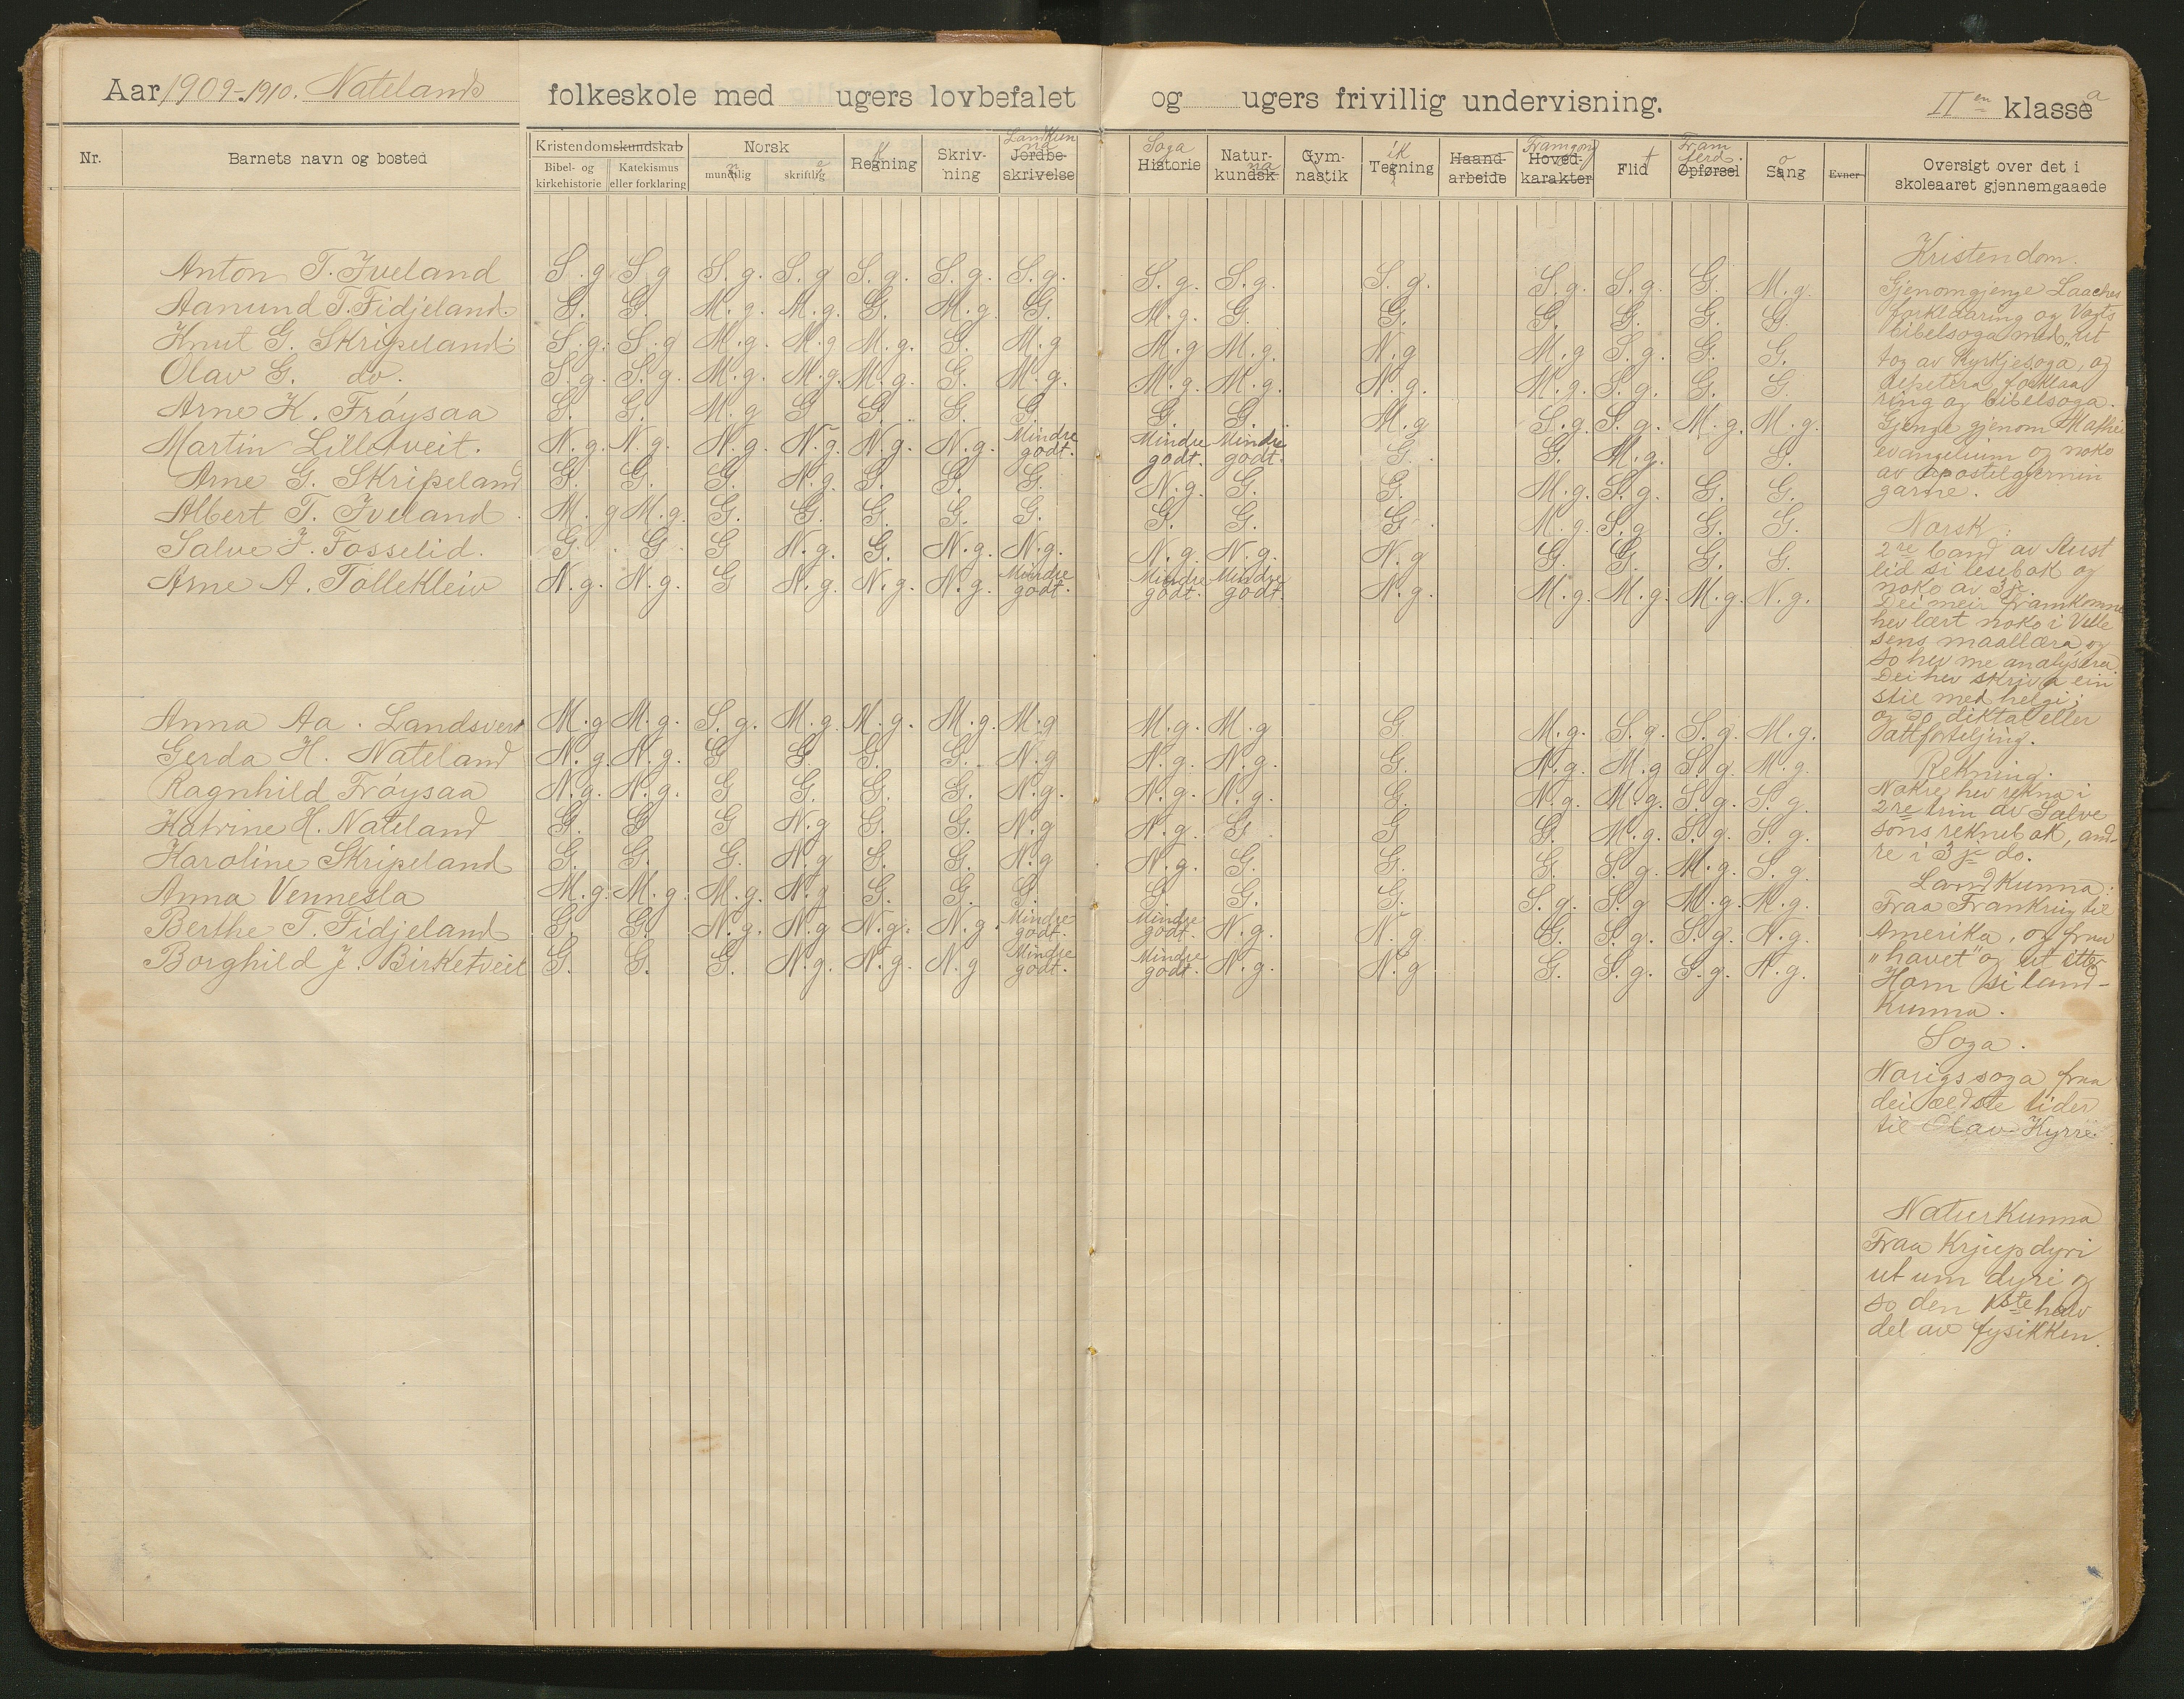 Aar 1909-1910. Natelands folkeskole med ugers lovbefalet og ugers frivillig undervisning. II en klasse a
Nr. Barnets navn og bosted Kristendomskundskab Norsk Regning k Skrivning Landkunna Jordbeskrivelse Soga Historie Naturkundsk na Gymnastik Tegning ik Haandarbeide Framgong Hovedkarakter Flid t Framferd. Opførsel Sang o Evner Oversigt over det i skoleaaret gjennemgaaede
Bibel- og kirkehistorie Katekismus eller forklaring mundtlig n skriftlig
Anton T. Iveland S.g S.g S.g. S.g S.g. S.g. S.g. S.g. S.g. S.g. S.g. S.g. G. M.g.
Aanund T. Fidjeland. G. G. M.g. M.g. G. M.g. G. M.g. G. G. G. G. G. G
Knut G. Skripeland. S.g. S.g M.g. M.g M.g. G. M.g M.g M.g. N.g M.g S.g. G. G.
Olav G. do. S.g. S.g. M.g. M.g. M.g. G. M.g. M.g. M.g. N.g. M.g. S.g. G. G
Arne K. Frøysaa G. G. M.g G G. G. G. G. G. M.g S.g. S.g. M.g. M.g.
Martin Lilletveit. N.g. N.g. N.g. N.g. N.g. N.g. Mindre godt. Mindre godt. Mindre godt. G. G. M.g. G.
Arne G. Skripeland G. G. G. N.g. G. G. G. N.g. G. G. M.g. S.g. G. G.
Albert T. Iveland. M.g M.g. G. G. G. G. G. G. G. G. M.g. S.g G. G.
Salve J. Fosselid. G. G G N.g. G. N.g. N.g. N.g. N.g. N.g G. G. G. G.
Arne A. Tollekleiv N.g. N.g. G N.g. N.g. N.g. Mindre godt. Mindre godt. Mindre godt. N.g. M.g. M.g. M.g. N.g.
Anna Aa. Landsverk M.g M.g. S.g. M.g. M.g. M.g. M.g M.g. M.g G M.g. S.g. S.g. M.g.
Gerda H. Nateland N.g. N.g. G G. G. G. N.g N.g. N.g. G. N.g. M.g S.g. M.g.
Ragnhild Frøysaa N.g. N.g. G G. G. G. N.g. N.g. N.g. G. N.g. M.g. S.g. S.g.
Katrine H. Nateland G. G G N.g G. G. N.g N.g. G. G G. M.g. S.g. S.g.
Karoline Skripeland G. G. G. N.g G. G. N.g N.g. G. G. G. S.g. M.g. S.g
Anna Vennesla M.g. M.g. M.g. N.g G. G. G. G. G. G. S.g. S.g M.g. M.g.
Berthe T. Fidjeland G. G. N.g. N.g N.g. N.g. Mindre godt. Mindre godt. N.g. N.g G. S.g. S.g. N.g.
Borghild J. Birketveit G. G. G. N.g. N.g. N.g Mindre godt. Mindre godt. N.g. N.g G. S.g. S.g. N.g.
Kristendom.
Gjenomgjenge Laaches
forklaaring og Vogts
bibelsoga med "ut
tog av Kyrkjesoga, og
repetera forklaa
ring og bibelsoga.
Gjenge gjenom Mathei
evangelium og noko
av apostelgjernin
garne.
Norsk:
2re band av Aust
lid si lesebok og
noko av 3je.
Dei meir framkomne
hev lært noko i Velle
sens maallæra og
so hev me analysera.
Dei hev skriva ein
stil med helgi;
og so diktat eller
attforteljing.
Rekning.
Nokre hev rekna i
2re trin av Salve
sons reknebok, and-
re i 3je do.
Landkunna:
Fraa Frankrig til
Amerika, og fraa
"havet" og ut etter
Horn si land-
kunna.
Soga.
Norigs soga fraa
dei ældste tider
til Olav Kyrre.
Naturkunna
Fraa Krjupdyri
ut um dyri og
so den 1ste halv
del av fysikken.